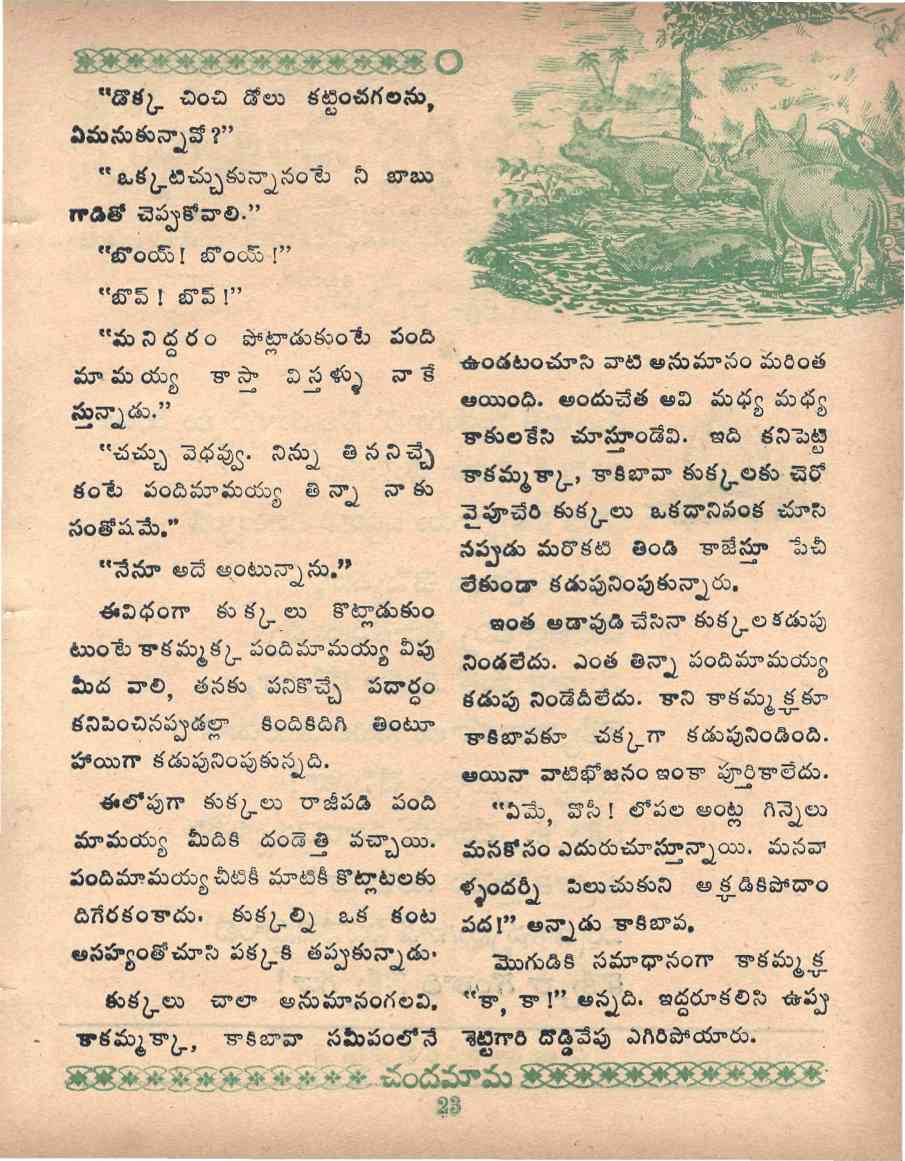 "డొక్క చించి డోలు కట్టించగలను,
ఏమనుకున్నావో?"
"ఒక్కటిచ్చుకున్నానంటే నీ బాబు
గాడితో చెప్పుకోవాలి."
"బొంయ్! బొంయ్!"
"బొవ్! బొవ్!"
"మనిద్దరం పోట్లాడుకుంటే పంది
మామయ్య కాస్తా విస్తళ్ళు నాకే
స్తున్నాడు."
"చచ్చు వెధవ్వు. నిన్ను తిననిచ్చే
కంటే పందిమామయ్య తిన్నా నాకు
సంతోషమే."
"నేనూ అదే అంటున్నాను."
ఈవిధంగా కుక్కలు కొట్లాడుకుం
టుంటే కాకమ్మక్క పందిమామయ్య వీపు
మీద వాలి, తనకు పనికొచ్చే పదార్థం
కనిపించినప్పుడల్లా కిందికిదిగి తింటూ
హాయిగా కడుపునింపుకున్నది.
ఈలోపుగా కుక్కలు రాజీపడి పంది
మామయ్య మీదికి దండెత్తి వచ్చాయి.
పందిమామయ్య చీటికీ మాటికీ కొట్లాటలకు
దిగేరకంకాదు. కుక్కల్ని ఒక కంట
అసహ్యంతోచూసి పక్కకి తప్పుకున్నాడు.
కుక్కలు చాలా అనుమానంగలవి.
కాకమ్మక్కా, కాకిబావా సమీపంలోనే
ఉండటంచూసి వాటి అనుమానం మరింత
అయింది. అందుచేత అవి మధ్య మధ్య
కాకులకేసి చూస్తూండేవి. ఇది కనిపెట్టి
కాకమ్మక్కా, కాకిబావా కుక్కలకు చెరో
వైపూచేరి కుక్కలు ఒకదానివంక చూసి
నప్పుడు మరొకటి తిండి కాజేస్తూ పేచీ
లేకుండా కడుపునింపుకున్నారు.
ఇంత అడావుడి చేసినా కుక్కలకడుపు
నిండలేదు. ఎంత తిన్నా పందిమామయ్య
కడుపు నిండేదీలేదు. కాని కాకమ్మక్కకూ
కాకిబావకూ చక్కగా కడుపునిండింది.
అయినా వాటిభోజనం ఇంకా పూర్తికాలేదు.
"ఏమే, వొసీ! లోపల అంట్ల గిన్నెలు
మనకోసం ఎదురుచూస్తూన్నాయి. మనవా
ళ్ళందర్నీ పిలుచుకుని అక్కడికిపోదాం
పద!" అన్నాడు కాకిబావ.
మొగుడికి సమాధానంగా కాకమ్మక్క
"కా, కా!" అన్నది. ఇద్దరూకలిసి ఉప్పు
శెట్టిగారి దొడ్డివేపు ఎగిరిపోయారు.
చందమామ
23